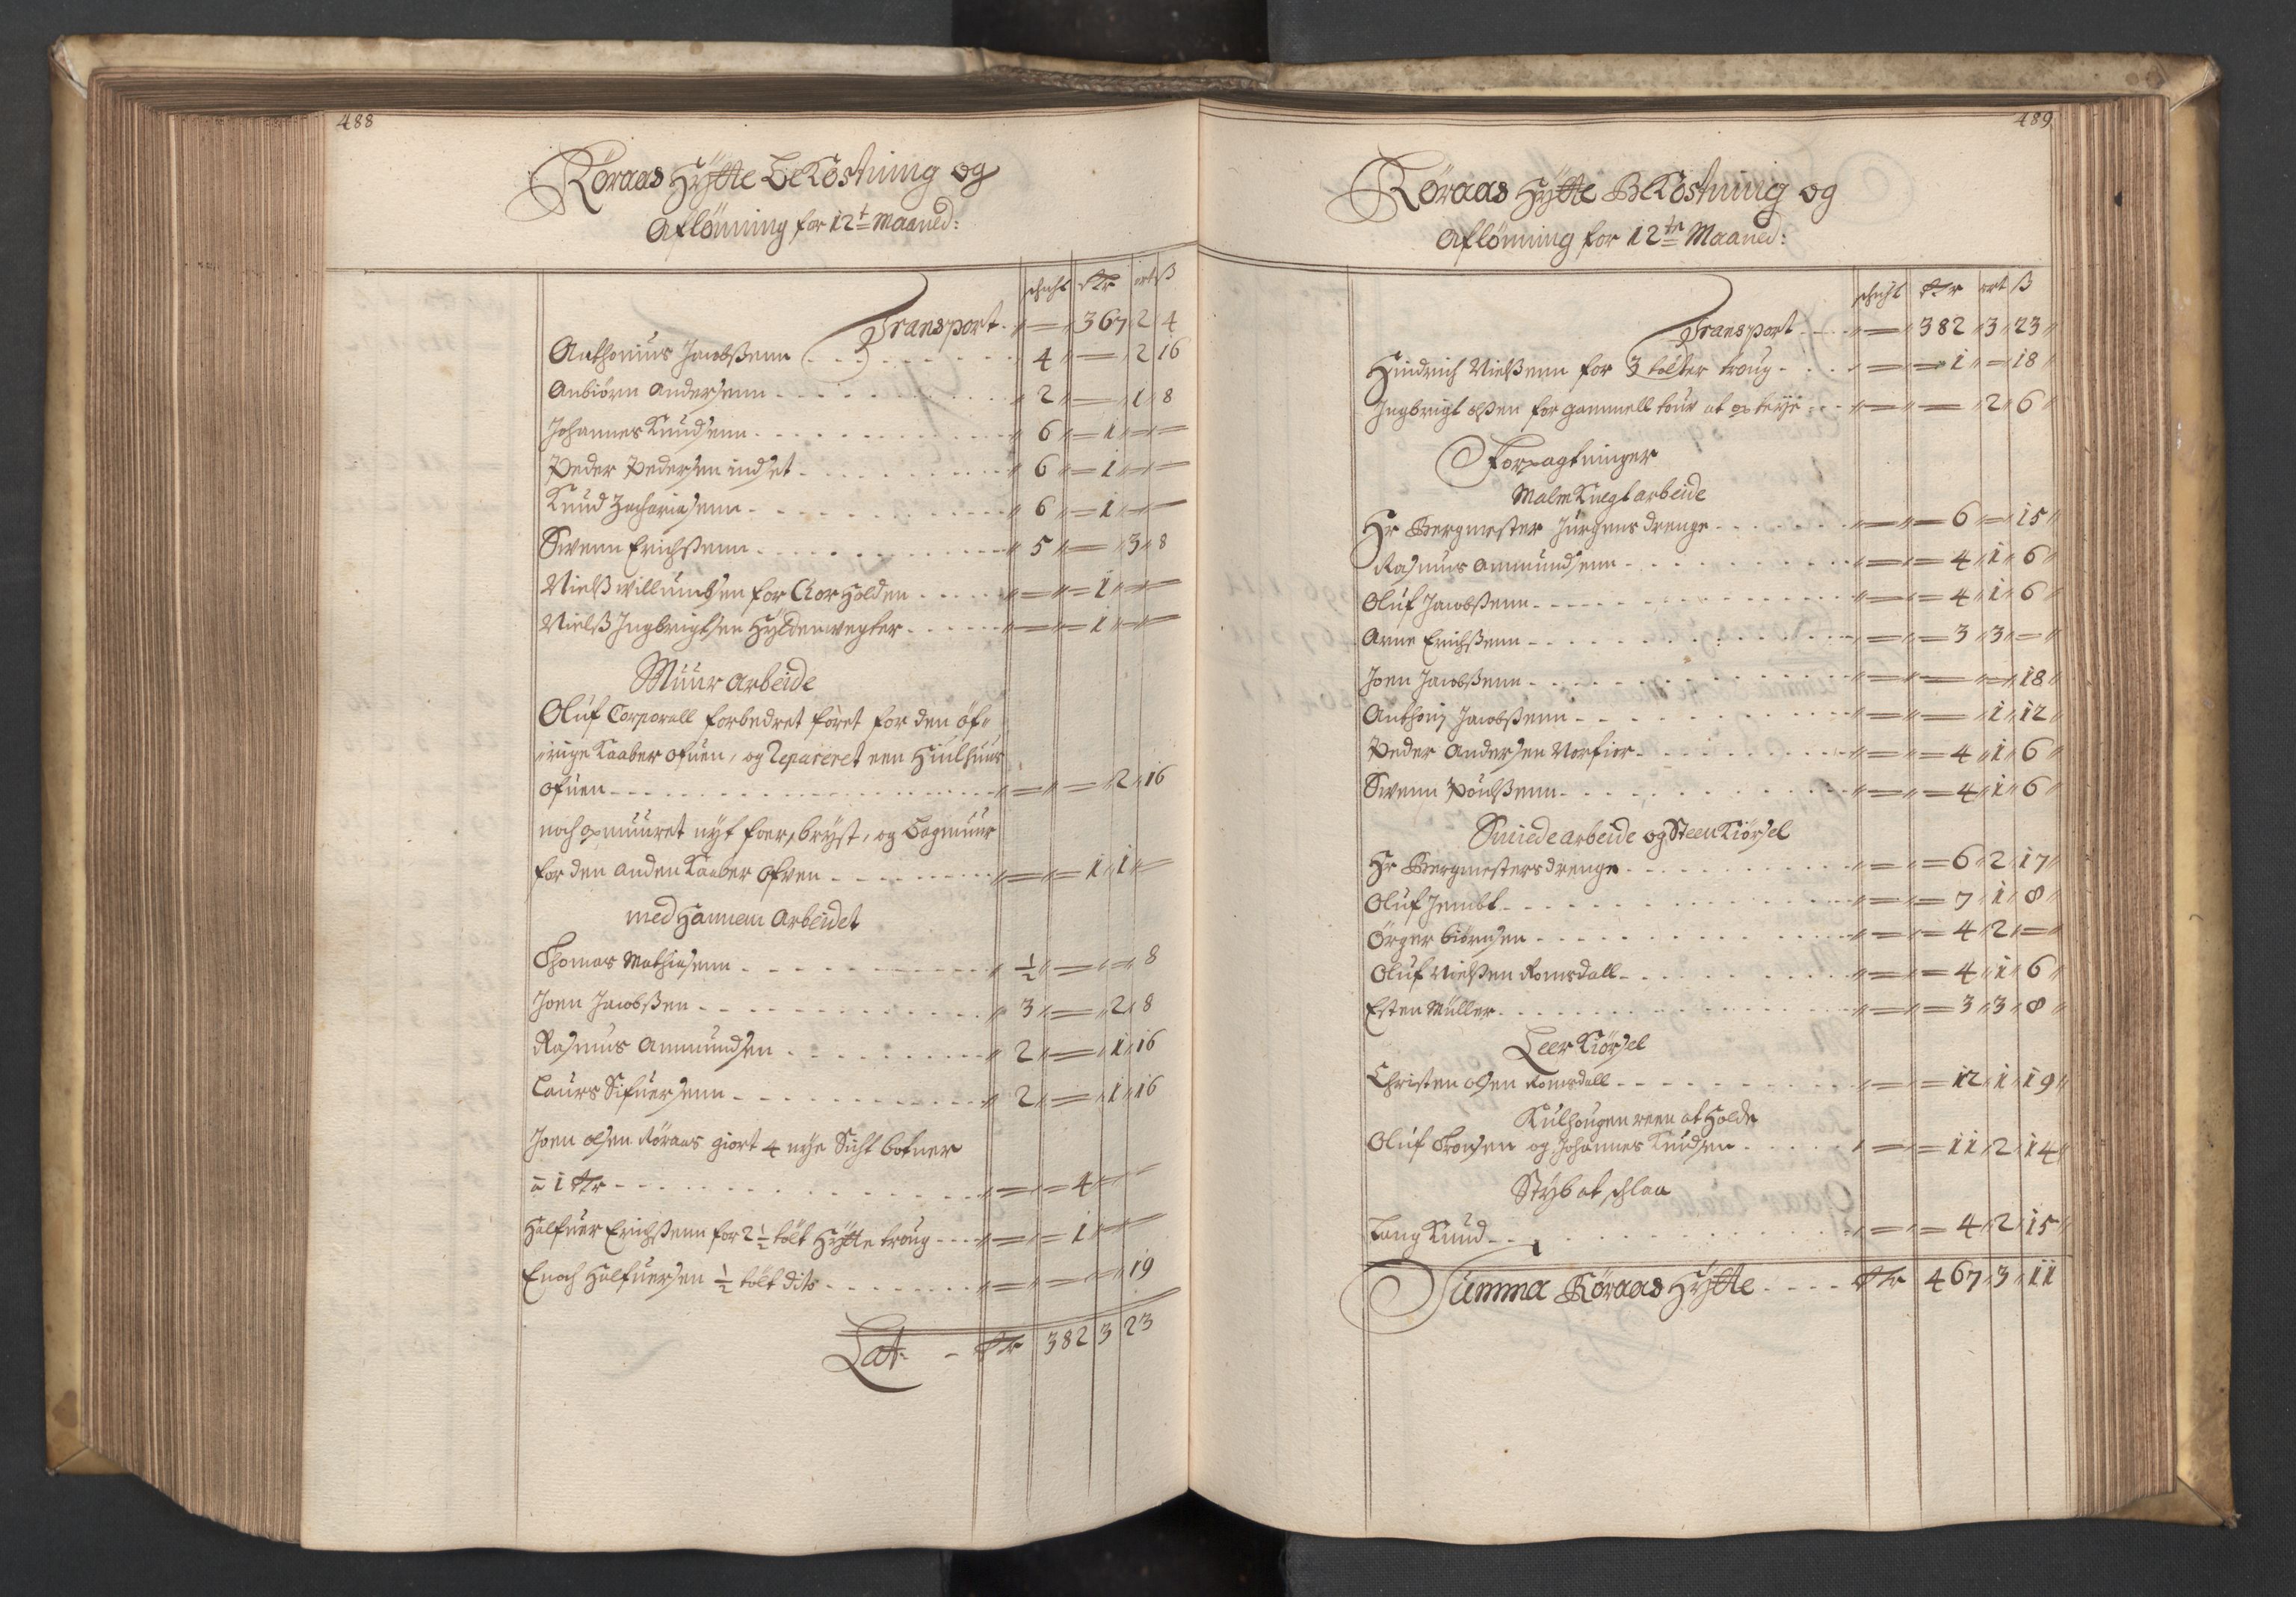 488
Röraas Hÿtte Bekostning og
Aflönning for 12t Maaned:
schicht Rdr ort ß
Transport. 〃 = 〃 367 2 4
Anthonius Jacobßenn 4 〃 = 〃 2 16
Anbiörn Andersenn 〃 2 〃 = 〃 1 〃 8
Johannes Knudsenn 〃 6 〃 = 1 〃 = 〃 =
Peder Pedersen indset 〃 6 〃 = 1 〃 = 〃 =
Knud Zachariasenn 〃 6 〃 = 1 〃 = 〃 =
Swenn Erichßenn 〃 5 〃 = 〃 3 〃 8
Nielß willumbsen for Clor Holden 〃 = 〃 = 1 〃 = 〃 =
Nielß Ingbrigtsen Hÿtdenwegter 〃 = 〃 = 1 〃 = 〃 =
Muur Arbeide
Oluf Corporall forbedret foret for den öf〃
〃rige Kaaber ofuen, og Repareret een Hiulhuus
ofuen 〃 = 〃 = 〃 2 〃 16
noch opmuuret nÿt foer, brÿst, og Bagmuur
for den anden Kaaber ofven 〃 = 〃 = 1 〃 1 〃 =
med Hannem Arbeidet
Thomas Mathiasenn 〃 ½ 〃 = 〃 = 〃 8
Joen Jacobßen 〃 3 〃 = 〃 2 〃 8
Rasmus Ammundsen 〃 2 〃 = 〃 1 〃 16
Laurs Sifuersenn 〃 2 〃 = 〃 1 〃 16
Joen olsen Röraas giort 4 nye Sicht botner
à 1 Rdr 〃 = 〃 = 4 〃 = 〃 =
Halfuer Erichßenn for 2½ tölt Hÿtte troug 〃 = 〃 = 1 〃 = 〃 =
Enoch Halfuersen ½ tölt dito 〃 = 〃 = 〃 = 〃 19
Lat. Rdr 382 3 23
489
Röraas Hÿtte Bekostning og
Aflönning for 12te Maaned:
schicht Rdr ort ß
Transport 〃 = 〃 382 〃 3 〃 23 〃
Hindrich Nielßenn for 3 tolter troug 〃 = 〃 = 1 〃 = 〃 18 〃
Ingbrigt olßen for gammell tour at op terje 〃 = 〃 = 〃 2 〃 6 〃
Forpagtninger
Malm Knegt arbeide
Hr Bergmester Jürgens drenge 〃 = 〃 = 6 〃 = 〃 15 〃
Rasmus Ammundsenn 〃 = 〃 = 4 〃 1 〃 6 〃
Oluf Jacobßenn 〃 = 〃 = 4 〃 1 〃 6 〃
Arne Erichßenn 〃 = 〃 = 3 〃 3 〃 = 〃
Joen Jacobßenn 〃 = 〃 = 〃 = 〃 18 〃
Anthonj Jacobßenn 〃 = 〃 = 〃 1 〃 12 〃
Peder Andersen Norfier 〃 = 〃 = 4 〃 1 〃 6 〃
Swenn Poulßenn 〃 = 〃 = 4 〃 1 〃 6 〃
Smiede arbeide og Steen Kiörsel
Hr Bergmesters drenge 〃 = 〃 = 6 〃 2 〃 17 〃
Oluf Jembt 〃 = 〃 = 7 〃 1 〃 8 〃
Örger biörnsen 〃 = 〃 = 4 〃 2 〃 = 〃
Oluf Nielßen Romsdall 〃 = 〃 = 4 〃 1 〃 6 〃
Esten Müller 〃 = 〃 = 3 〃 3 〃 8 〃
Leer Kiörsel
Christen olsen Romsdall 〃 = 〃 = 12 〃 1 〃 19 〃
Kulhougen reen at Holde
Oluf Tronsen og Johannes Knudsen 〃 = 〃 = 11 〃 2 〃 14 〃
Stÿb at schlaa
Lang Knud 〃 = 〃 = 4 〃 2 〃 15 〃
Summa Röraas Hÿtte Rdr 467 〃 3 〃 11